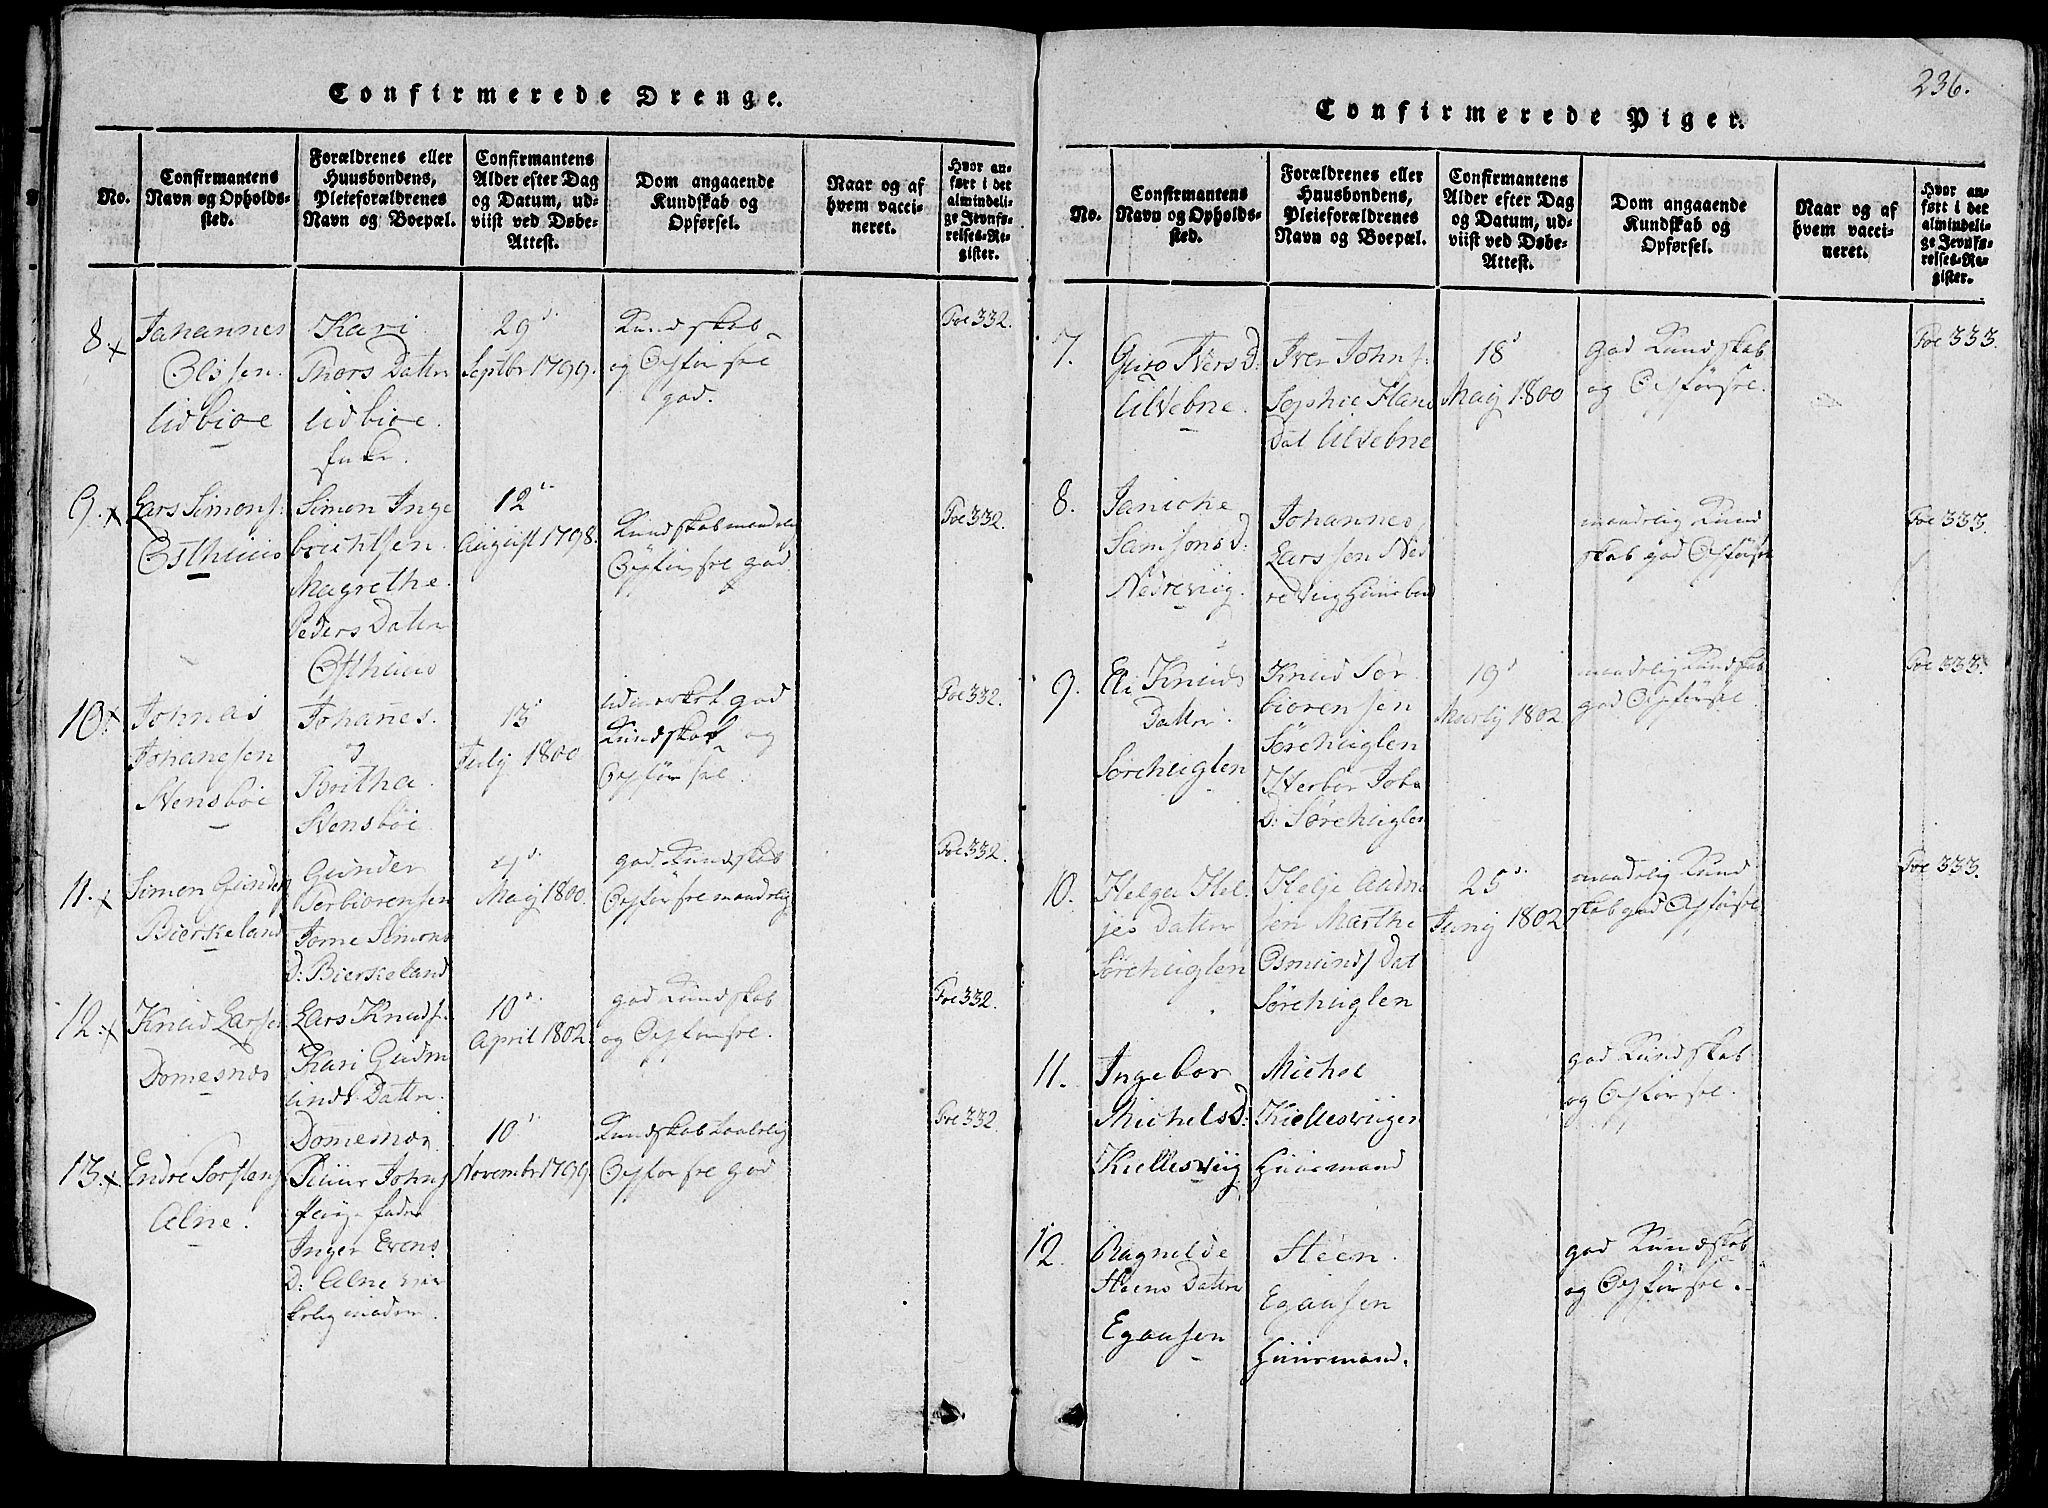 236.
Confirmerede Drenge.
No.
Confirmantens
Navn og Opholds-
sted.
Forældrenes eller
Huusbondens,
Pleieforældrenes
Navn og Boepæl.
Confirmantens
Alder efter Dag
og Datum, ud-
viist ved Døbe-
Attest.
Dom angaaende
Kundskab og
Opførsel.
Naar og af
hvem vacci-
neret.
Hvor an-
ført i det
almindeli-
ge Jevnfø-
relses-Re-
gister.
8 x
Johannes
Olssen.
Udbiøe
Kari
Thors Datter
Udbiøe.
29
Septbr 1799.
Kundskab
og Opførsel
god.
Foe 332.
9. x
Lars Simons.
Osthuus
Simon Inge
brichtsen.
Magrethe
Peders Datter
Osthuus
12
August 1798.
Kundskab maadelig
Opførsel god.
Foe 332.
10. x
Johnas
Johanesen
Stensbøe
Johanes.
Britha.
Stensbøe
13
July 1800
Udmerket god
Kundskab og
Opførsel.
Foe 332.
11. x
Simon Gunders
Bierkeland
Gunder
Torbiorensen
Simons
D: Bierkeland
4
May 1800.
god Kundskab
Opførsel maadelig
Foe 332.
12. x
Knud Larsen
Domesnes
Lars Knuds.
Kari Gudm
unds Datter.
Domesnes
10
April 1802.
god Kundskab
og Opførsel.
Foe 332.
13. x
Endre Torstens
Alne.
Johns
Inger Evens
D: Alne
10
November 1799.
Kundskab
Opførsel god
Foe 332.
Confirmerede Piger.
No.
Confirmantens
Navn og Opholds-
sted.
Forældrenes eller
Huusbondens,
Pleieforældrenes
Navn og Boepæl.
Confirmantens
Alder efter Dag
og Datum, ud-
viist ved Døbe-
Attest.
Dom angaaende
Kundskab og
Opførsel.
Naar og af
hvem vacci-
neret.
Hvor an-
ført i det
almindeli-
ge Jevnfø-
relses-Re-
gister.
7.
Guro Ivers D:
Ulvebne.
Iver Johns.
Sophie Hans
Dat Ulvebne
18
May 1800
god Kundskab
og Opførsel.
Foe 333.
8.
Janicke
Samsons D:
Nedreviig.
Johannes
Larssen Ned
reviig Huusbond
maadelig Kund
skab god Opførsel
Foe 333.
9.
Eli Knuds
Datter.
Sørehuglen
Knud Tor
biorensen
Sørehuglen
Herbor Joha
D: Sørehuglen
19
Martij 1802.
maadelig Kundskab
god Opførsel.
Foe 333.
10.
Helga Hel
jes Datter
Sørehuglen
Helje
sen Marthe
Osmunds Dat
Sørehuglen
25
Junij 1802
maadelig Kund
skab god Opførsel
Foe 333.
11.
Ingebor
Michels D:
Kiellesviig
Michel
Kiellesviigen
Huusmand
god Kundskab
og Opførsel.
12.
Ragnilde
Steens Datter
Egausen
Steen.
Egausen
Huusmand.
god Kundskab
og Opførsel.